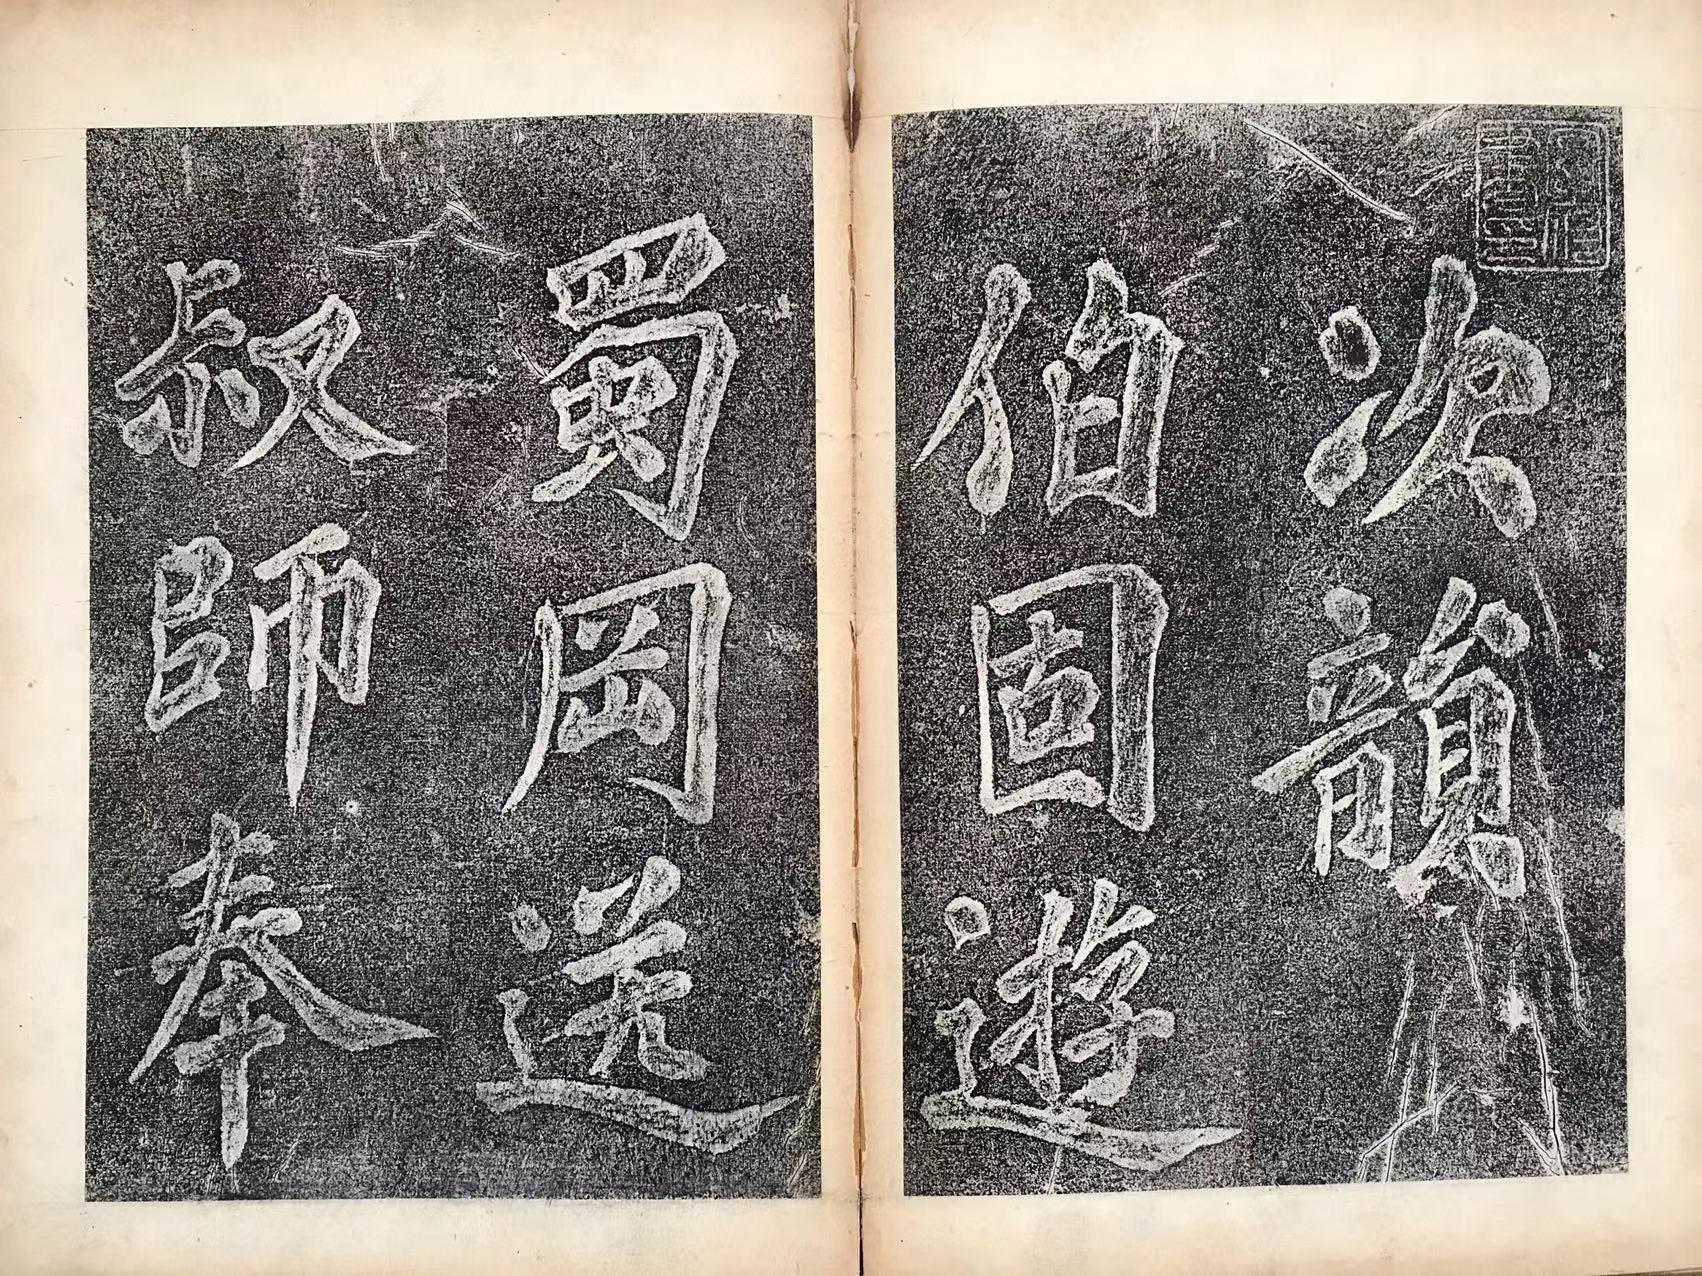 次韻
伯固遊
蜀岡送
叔師奉